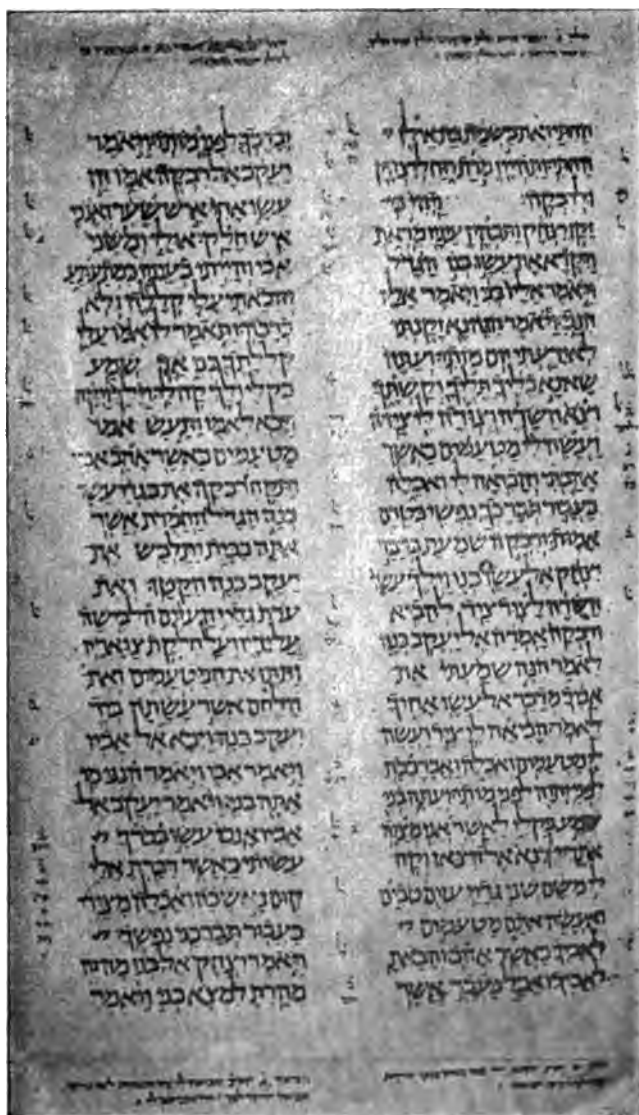 החתי ואת בשמת בת אילן
החתי ותהיין מרת רוח ליצחק
ולרבקה ויהי כי
זקן יצחק ותכהין עיניו מראת
ויקרא את עשו בנו הגדל
ויאמר אליו בני ויאמר אליו
הנני ויאמר הנה נא זקנתי
לא ידעתי יום מותי ועתה
שא נא כליך תליך וקשתך
וצא השדה וצודה לי צידה
ועשה לי מטעמים כאשר
אהבתי והביאה לי ואכלה
בעבור תברכך נפשי בטרם
אמות ורבקה שמעת בדבר
יצחק אל עשו בנו וילך עשו
השדה לצוד ציד להביא
ורבקה אמרה אל יעקב בנה
לאמר הנה שמעתי את
אביך מדבר אל עשו אחיך
לאמר הביאה לי ציד ועשה
לי מטעמים ואכלה ואברככה
לפני יהוה לפני מותי ועתה בני
שמע בקלי לאשר אני מצוה
אתך לך נא אל הצאן וקח
לי משם שני גדיי עזים טבים
ואעשה אתם מטעמים
לאביך כאשר אהב והבאת
לאביך ואכל בעבר אשר
יברכך לפני מותו ויאמר
יעקב אל רבקה אמו הן
עשו אחי איש שער ואנכי
איש חלק אולי ימשני
אבי והייתי בעיניו כמתעתע
והבאתי עלי קללה ולא
ברכה ותאמר לו אמו עלי
קללתך בני אך שמע
בקלי ולך קח לי וילך ויקח
ויבא לאמו ותעש אמו
מטעמים כאשר אהב אביו
ותקח רבקה את בגדי עשו
בנה הגדל החמדת אשר
אתה בבית ותלבש את
יעקב בנה הקטן ואת
ערת גדיי העזים הלבישה
על ידיו ועל חלקת צואריו
ותתן את המטעמים ואת
הלחם אשר עשתה ביד
יעקב בנה ויבא אל אביו
ויאמר אבי ויאמר הנני מי
אתה בני ויאמר יעקב אל
אביו אנכי עשו בכרך
עשיתי כאשר דברת אלי
קום נא שבה ואכלה מצידי
בעבור תברכני נפשך
ויאמר יצחק אל בנו מה זה
מהרת למצא בני ויאמר